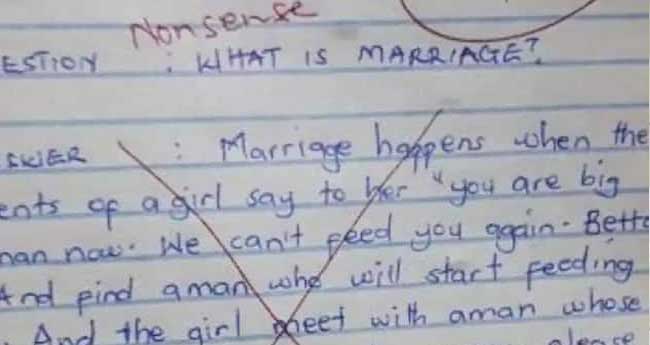 Nonsense
ESTION : WHAT IS MARRIAGE?
: Marriage happens when the
ents of a girl say to her "you are big
man now. We can't feed you again. Bette
And find a man who will start feeding
And the girl meet with a man whose
please